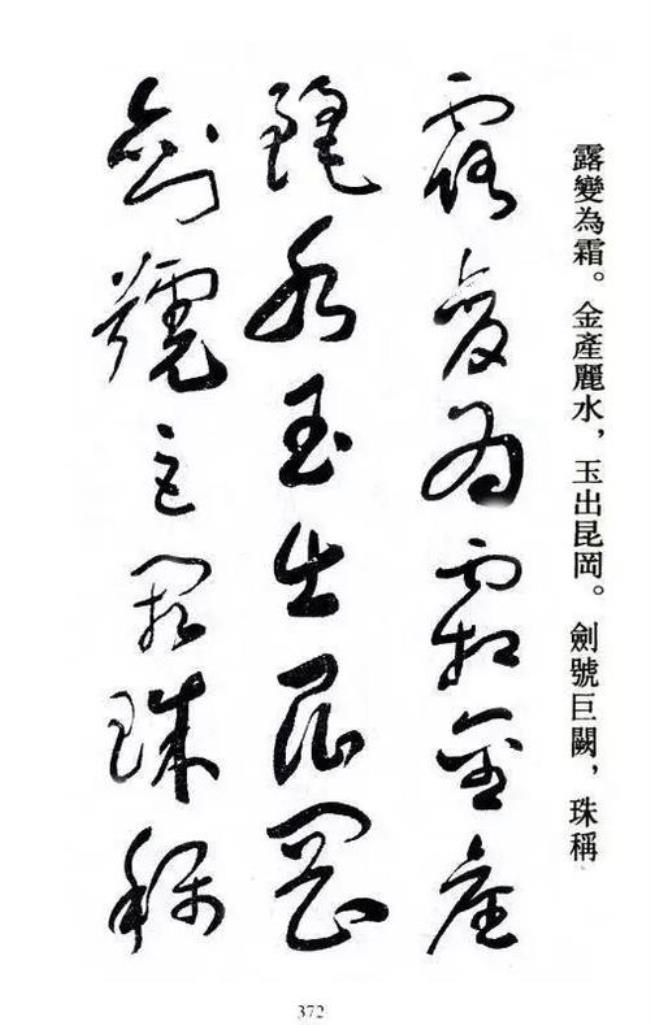 露變為霜。金產麗水，玉出昆岡。劍號巨闕，珠稱
露變為霜金產
麗水玉出崑岡
劍號巨闕珠稱
372